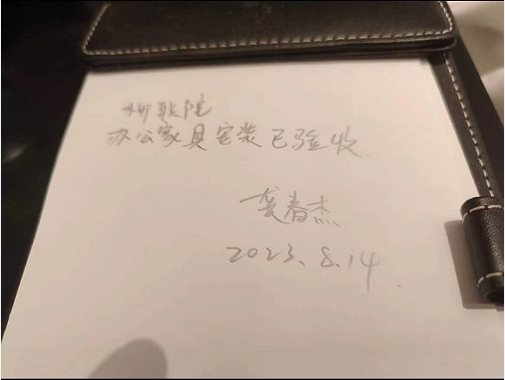 物联院
办公家具安装已验收
龚春杰
2023.8.14